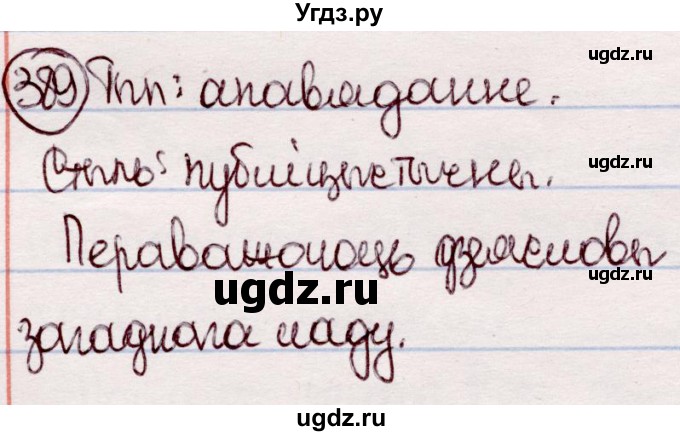 Угдз.ру
ugdz.ru
389 Тып: апавяданне.
Стыль: публіцыстычны.
ugdz.ru
Пераважаюць дзеясловы
ugdz.ru
ugdz.ru
загаднага ладу.
ugdz.ru
ugdz.ru